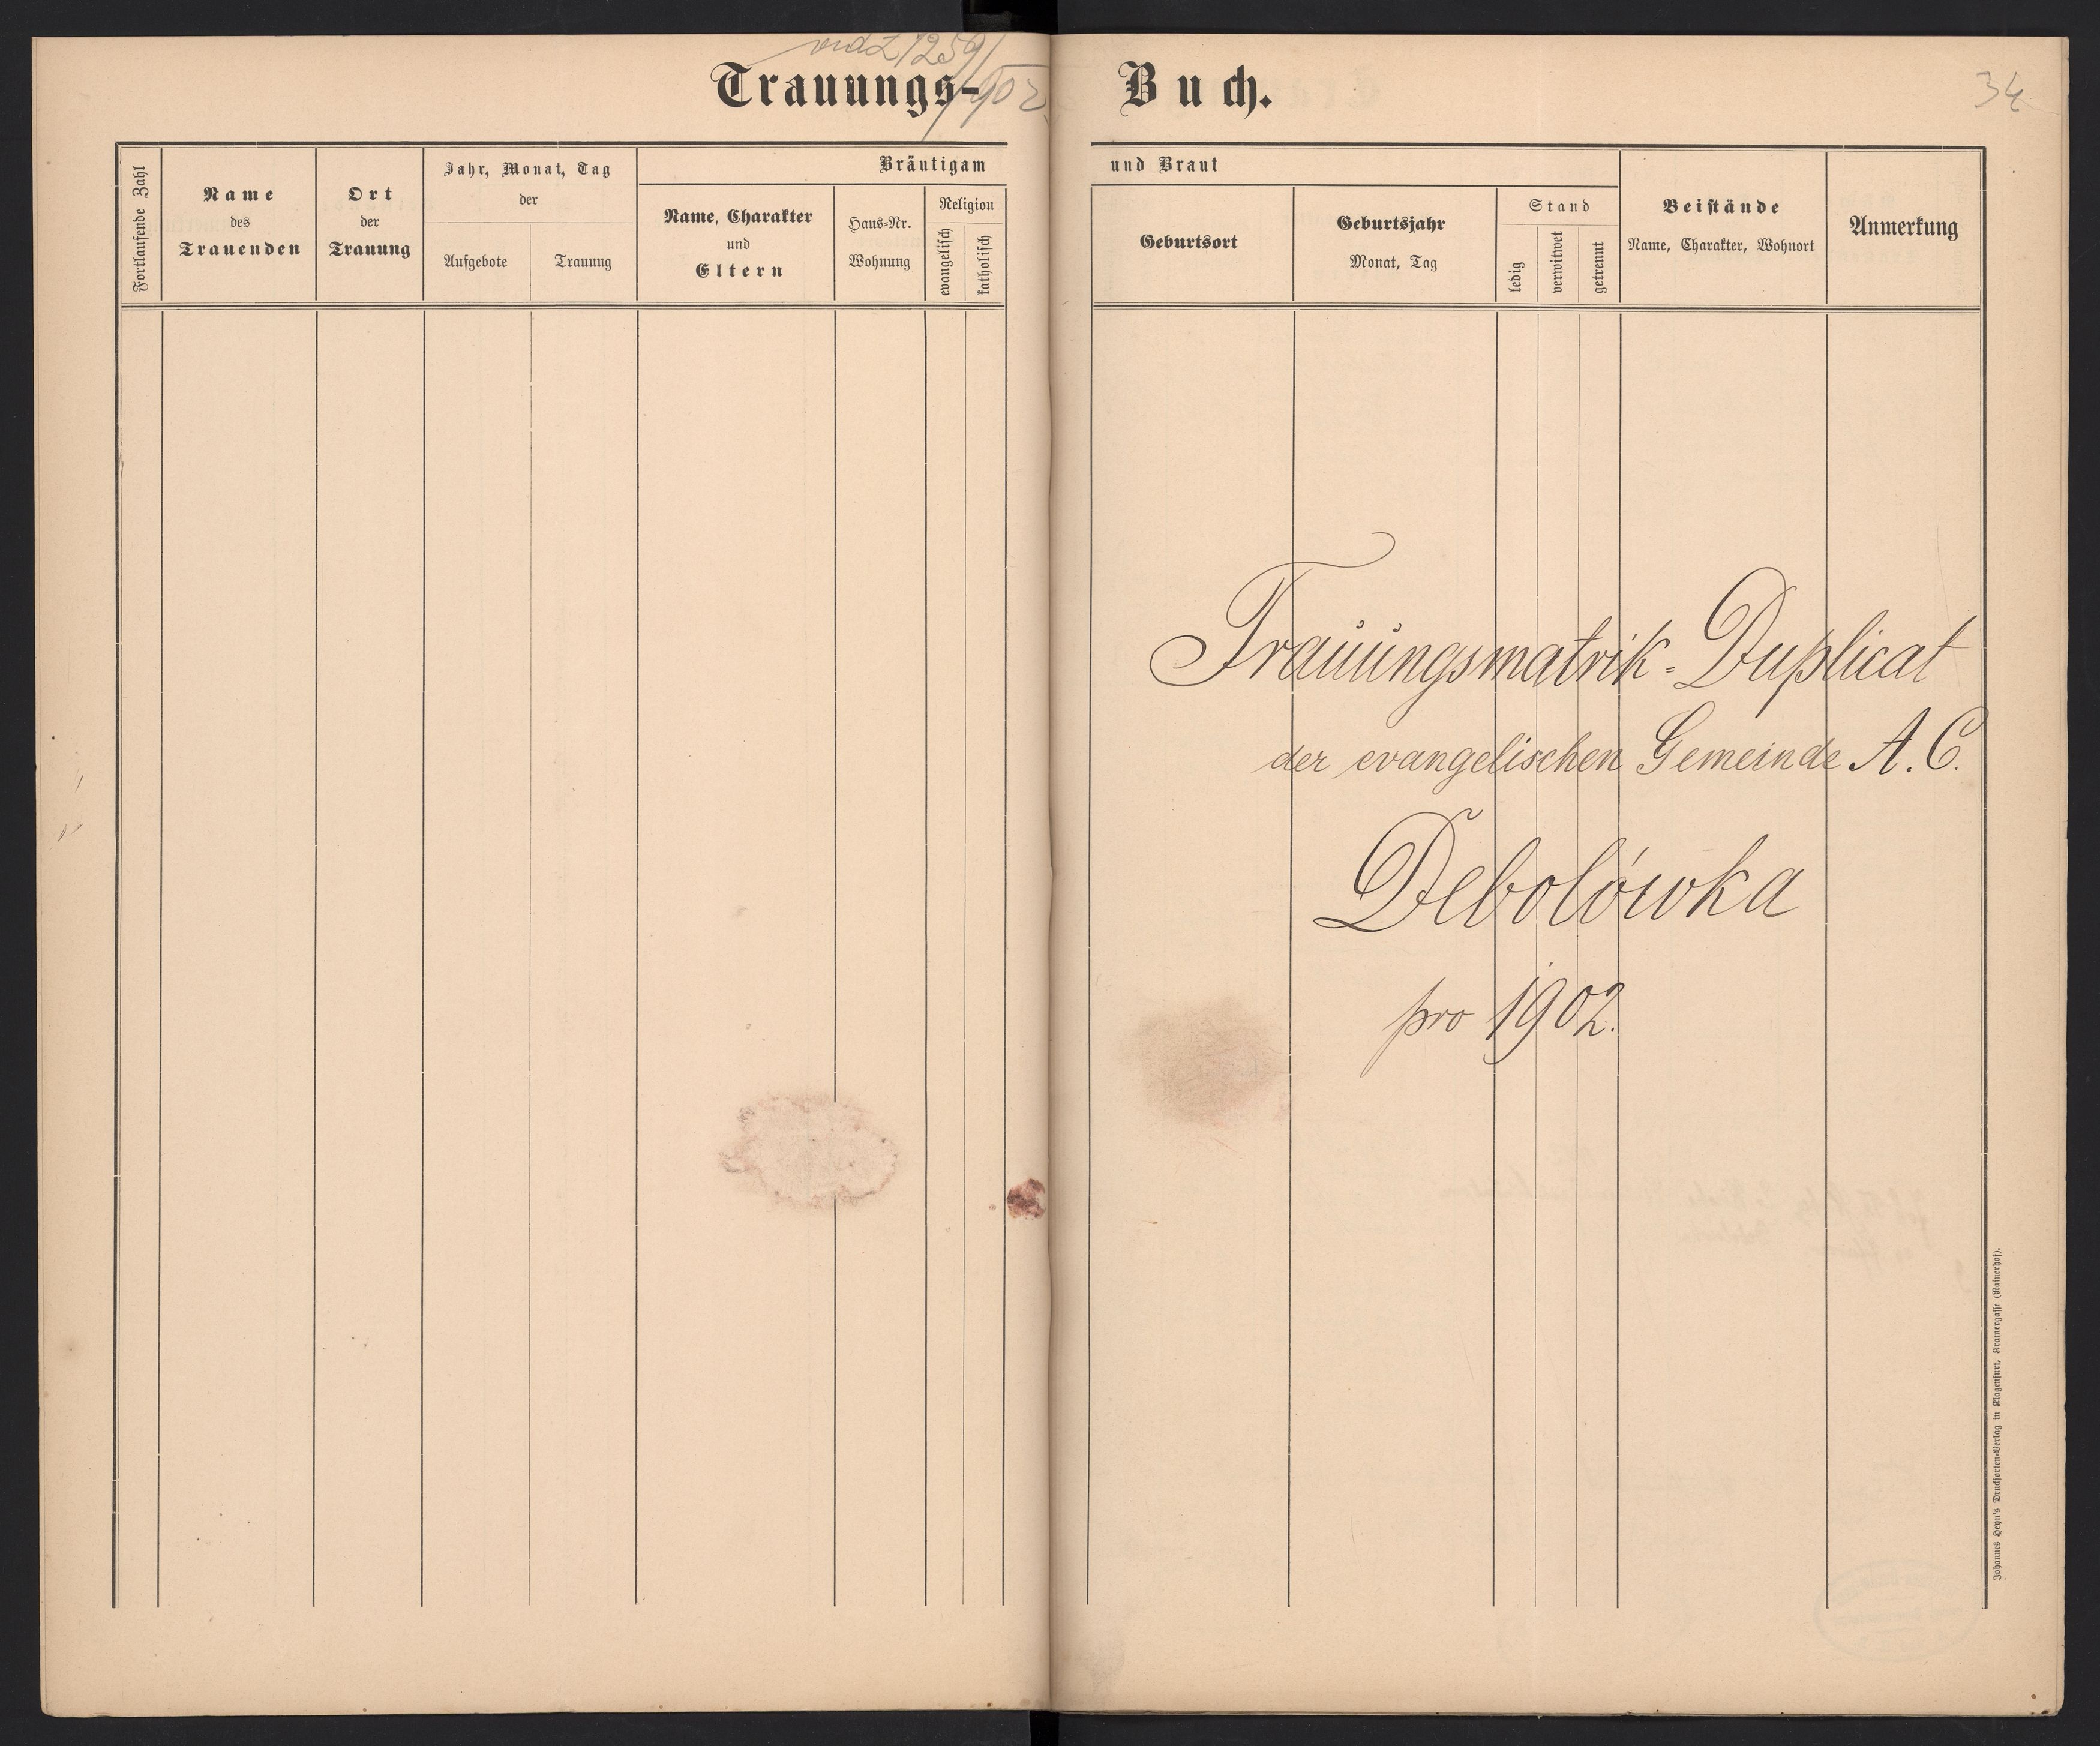 vid Z 1259/902
Trauungs-
Buch.
34
Fortlaufende Zahl
Name
des
Trauenden
Ort
der
Trauung
Jahr, Monat, Tag
der
Aufgebote
Trauung
Bräutigam
und Braut
Name, Charakter
und
Eltern
Haus-Nr.
Wohnung
Religion
evangelisch
katholisch
Geburtsort
Geburtsjahr
Monat, Tag
Stand
ledig
verwitwet
getrennt
Beistände
Name, Charakter, Wohnort
Anmerkung
Trauungsmatrik-Duplicat
der evangelischen Gemeinde A. C.
Debolówka
pro 1902.
Johannes Heyn's Drucksorten-Verlag in Klagenfurt, Kramergasse (Rainerhof).